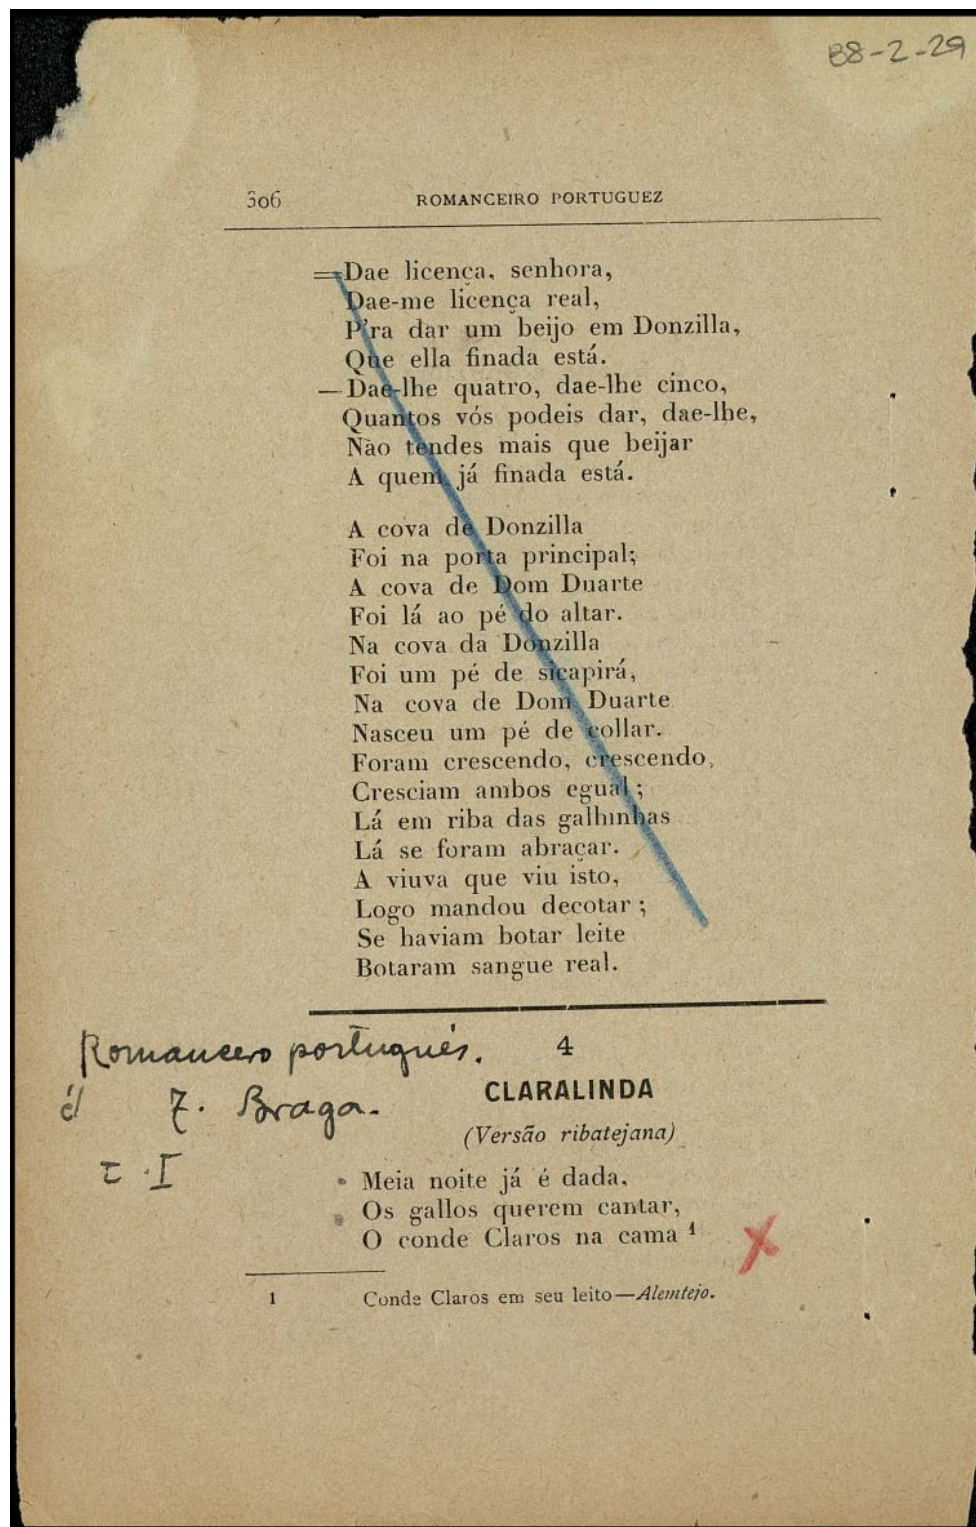 B8-2-29
306 ROMANCEIRO PORTUGUEZ
=Dae licença, senhora,
Dae-me licença real,
P'ra dar um beijo em Donzilla,
Que ella finada está.
—Dae-lhe quatro, dae-lhe cinco,
Quantos vós podeis dar, dae-lhe,
Não tendes mais que beijar
A quem já finada está.
A cova de Donzilla
Foi na porta principal;
A cova de Dom Duarte
Foi lá ao pé do altar.
Na cova da Donzilla
Foi um pé de sicapirá,
Na cova de Dom Duarte
Nasceu um pé de collar.
Foram crescendo, crescendo,
Cresciam ambos egual;
Lá em riba das galhinhas
Lá se foram abraçar.
A viuva que viu isto,
Logo mandou decotar;
Se haviam botar leite
Botaram sangue real.
Romancero portugués.
4
CLARALINDA
T. Braga.
(Versão ribatejana)
t. I
Meia noite já é dada,
Os gallos querem cantar,
O conde Claros na cama 1
1 Conde Claros em seu leito—Alemtejo.